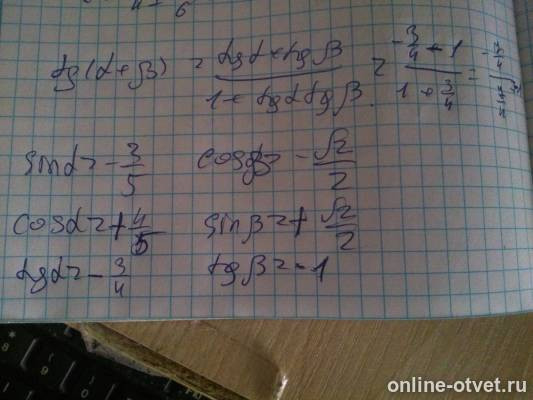 tg(α+β) = tgα+tgβ / 1+tgαtgβ = -3/4-1 / 1+3/4 =
sinα=-3/5 cosβ=-√2/2
cosα=+4/5 sinβ=+√2/2
tgα=-3/4 tgβ=-1
online-otvet.ru